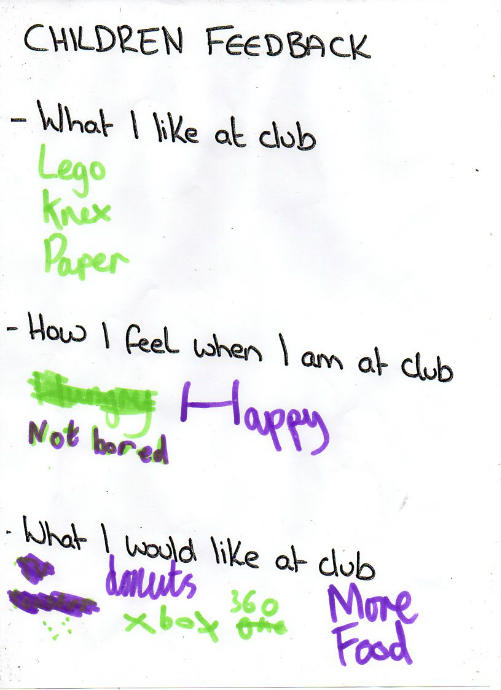 CHILDREN FEEDBACK
- What I like at club
Lego
Knex
Paper
- How I feel when I am at club
Hungry Happy
Not bored
- What I would like at club
donuts
xbox 360 one
More
Food